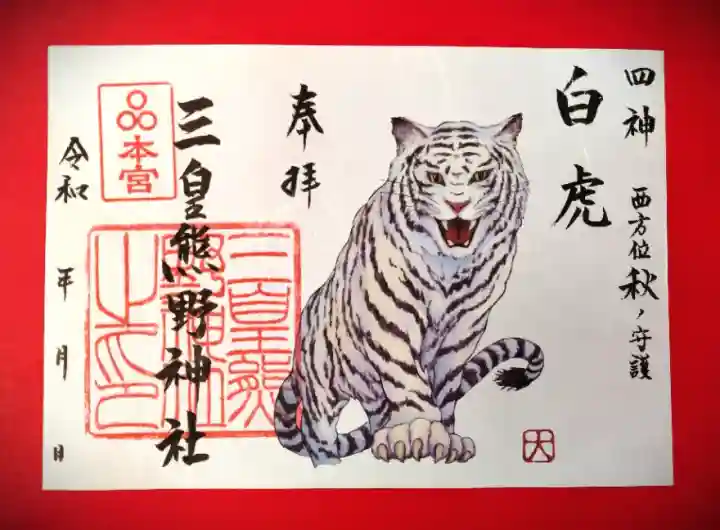 四神
西方位 秋ノ守護
白虎
奉拝
三皇熊野神社
本宮
三皇熊
野神社
之印
令和 年 月 日
大